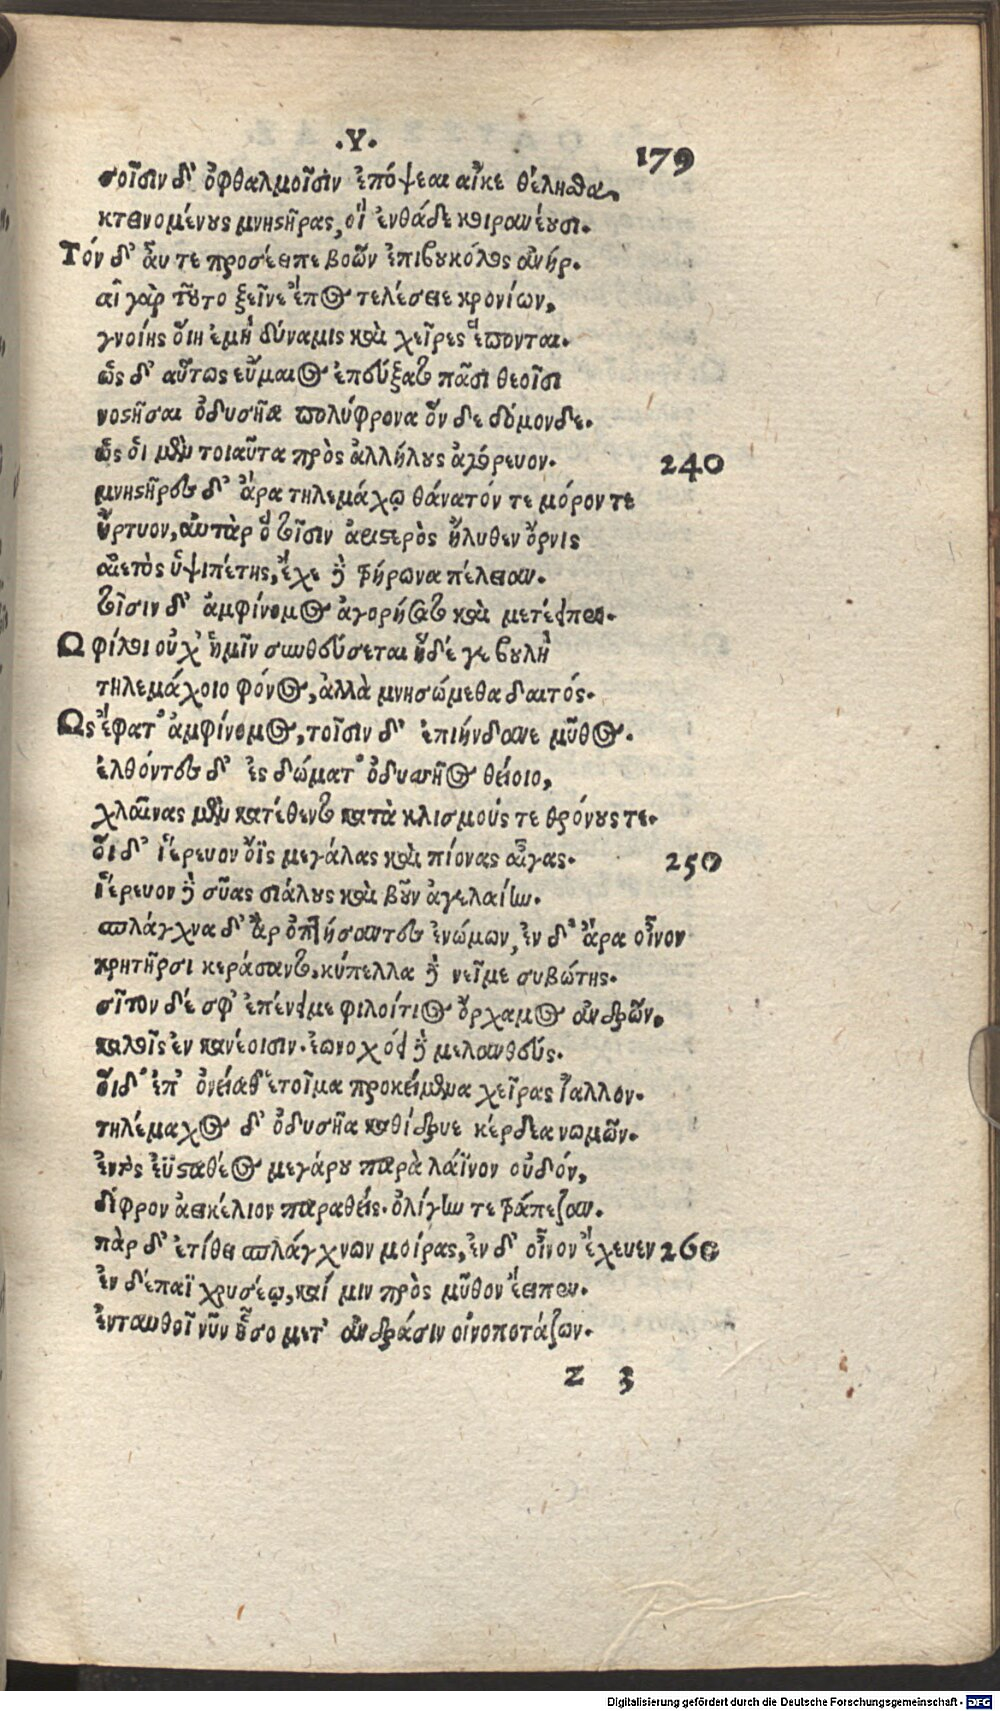 .Υ. 179
σοῖσιν δ' ὀφθαλμοῖσιν ἐπόψεαι αἴκε θέλησθα,
κτεινομένους μνηστῆρας, οἳ ἐνθάδε κοιρανέουσι.
Τόν δ' αὖ τε προσέειπε βοῶν ἐπιβουκόλος ἀνήρ.
αἲ γὰρ τοῦτο ξεῖνε ἔπος τελέσειε κρονίων,
γνοίης οἵη ἐμὴ δύναμις καὶ χεῖρες ἕπονται.
ὣς δ' αὔτως εὔμαιος ἐπεύξατο πᾶσι θεοῖσι
νοστῆσαι ὀδυσῆα πολύφρονα ὅν δε δόμονδε.
ὣς οἱ μὲν τοιαῦτα πρὸς ἀλλήλους ἀγόρευον. 240
μνηστῆρες δ' ἄρα τηλεμάχῳ θάνατόν τε μόρον τε
ἤρτυον, αὐτὰρ ὁ τοῖσιν ἀειστερὸς ἤλυθεν ὄρνις
αἰετὸς ὑψιπέτης, ἔχε δὲ τρήρωνα πέλειαν.
τοῖσιν δ' ἀμφίνομος ἀγορήσατο καὶ μετέειπεν.
Ω φίλοι οὐχ' ἡμῖν συνθεύσεται ἥδέ γε βουλὴ
τηλεμάχοιο φόνος, ἀλλὰ μνησώμεθα δαιτός.
Ως ἔφατ' ἀμφίνομος, τοῖσιν δ' ἐπιήνδανε μῦθος.
ἐλθόντες δ' ἐς δώματ' ὀδυσσῆος θείοιο,
χλαίνας μὲν κατέθεντο κατὰ κλισμούς τε θρόνους τε.
οἵ δ' ἱέρευον ὄϊς μεγάλας καὶ πίονας αἶγας. 250
ἱέρευον δὲ σύας σιάλους καὶ βοῦν ἀγελαίην.
σπλάγχνα δ' ἄρ ὀπτήσαντες ἐνώμων, ἐν δ' ἄρα οἶνον
κρητῆρσι κεράσαντο. κύπελλα δὲ νεῖμε συβώτης.
σῖτον δέ σφ' ἐπένειμε φιλοίτιος ὄρχαμος ἀνδρῶν.
καλοῖς ἐν κανέοισιν. ἐωνοχόει δὲ μελανθεύς.
οἵδ' ἐπ' ὀνείαθ' ἑτοῖμα προκείμενα χεῖρας ἴαλλον.
τηλέμαχος δ' ὀδυσῆα καθίδρυε κέρδεα νωμῶν.
ἐντὸς ἐϋσταθέος μεγάρου παρὰ λάϊνον οὐδόν,
δίφρον ἀεικέλιον παραθείς. ὀλίγην τε τράπεζαν.
πὰρ δ' ἐτίθει σπλάγχνων μοίρας, ἐν δ' οἶνον ἔχευεν 260
ἐν δέπαϊ χρυσέῳ, καί μιν πρὸς μῦθον ἔειπεν.
ἐνταυθοῖ νῦν ἧσο μετ' ἀνδράσιν οἰνοποτάζων.
Z 3
Digitalisierung gefördert durch die Deutsche Forschungsgemeinschaft - DFG